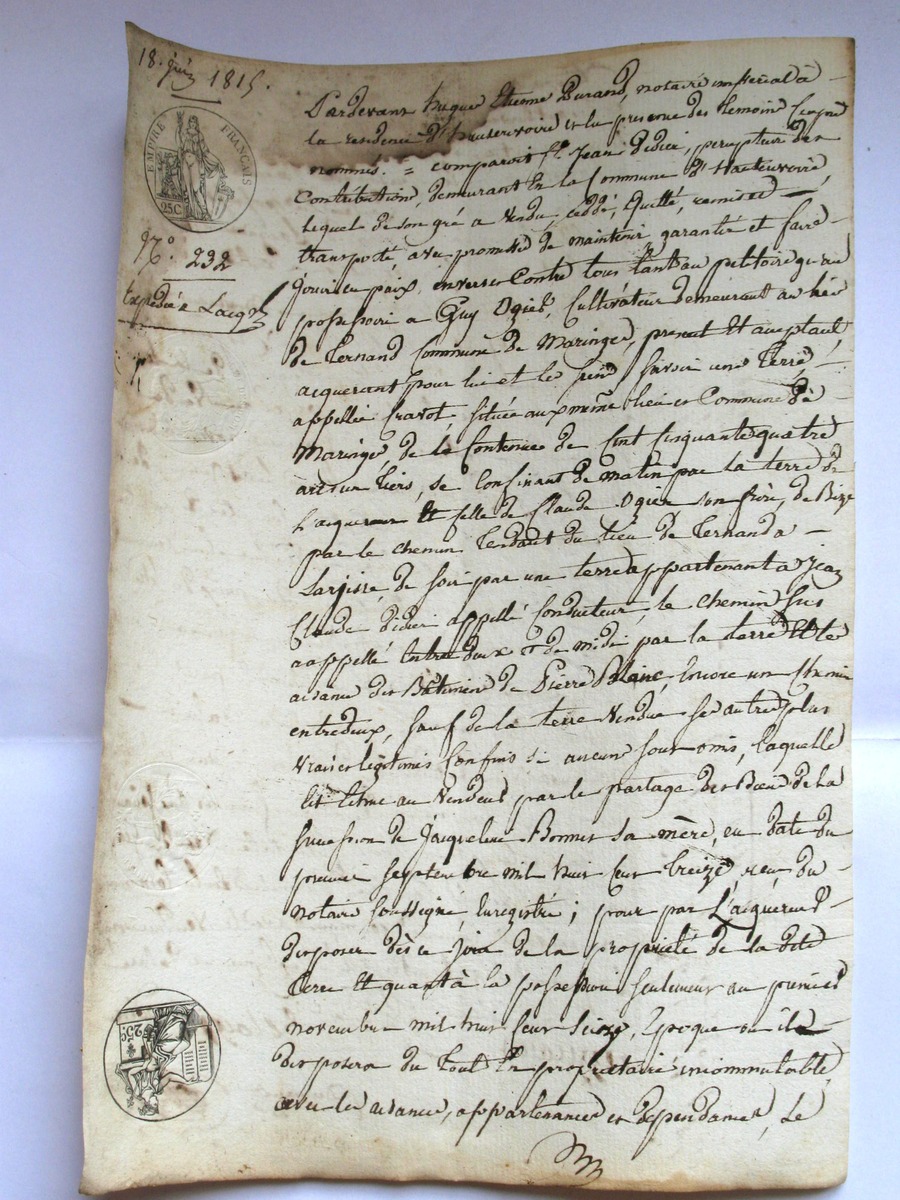 18. juin 1815.
EMPIRE FRANÇAIS
25C
N.° 292
Expédié à l'acqr
Pardevant hugue Etienne Durand, notaire impérial à
la résidence d'hauterivoire et en presence des temoins cy après
nommés. = comparoit Sr. Jean Didier, percepteur des
Contributions, demeurant En la Commune d'hauterivoire,
lequel de son gré a vendu, cèddé, quitté, remis et
transporté avec promesse de maintenir garantir et faire
jouir en paix, envers et Contre tous tant au petitoire qu'au
possessoire a Guy Ogier, Cultivateur demeurant au lieu
de Fernand Commune de Maringe, present Et acceptant,
acquerant pour lui et les siens savoir une Terre,
appellée Cravot, située aux même lieu et Commune de
Maringe de la Contenue de Cent Cinquante quatre
ares un tiers, se Confinant de matin par la terre de
l'acquereur Et celle de Claude Ogier son frère, de Bize
par le chemin Tendant du lieu de Fernand a
Larjasse, de soir par une terre appartenant a Jean
Claude Didier appellé Conducteur, le chemin sus
rappellé Entre deux et de midi par la terre Et les
aisances des Bâtiments de Pierre Blanc, Encore un Chemin
entredeux, sauf de la terre Vendue ses autres plus
vrais et légitimes Confins si aucuns sont omis, laquelle
est échue au Vendeur par le partage des Biens de la
succession de Jacqueline Bonnet sa mère, en date du
premier septembre mil huit cent treize, reçu du
notaire soussigné, Enregistré; pour par l'acquereur
disposer dès ce jour de la propriété de la dite
Terre Et quant à la possession seulement au premier
novembre mil huit cent seize, Epoque ou il
disposera du tout En propriétaire incommutable,
avec les aisances, appartenances et dépendances, Le
25C